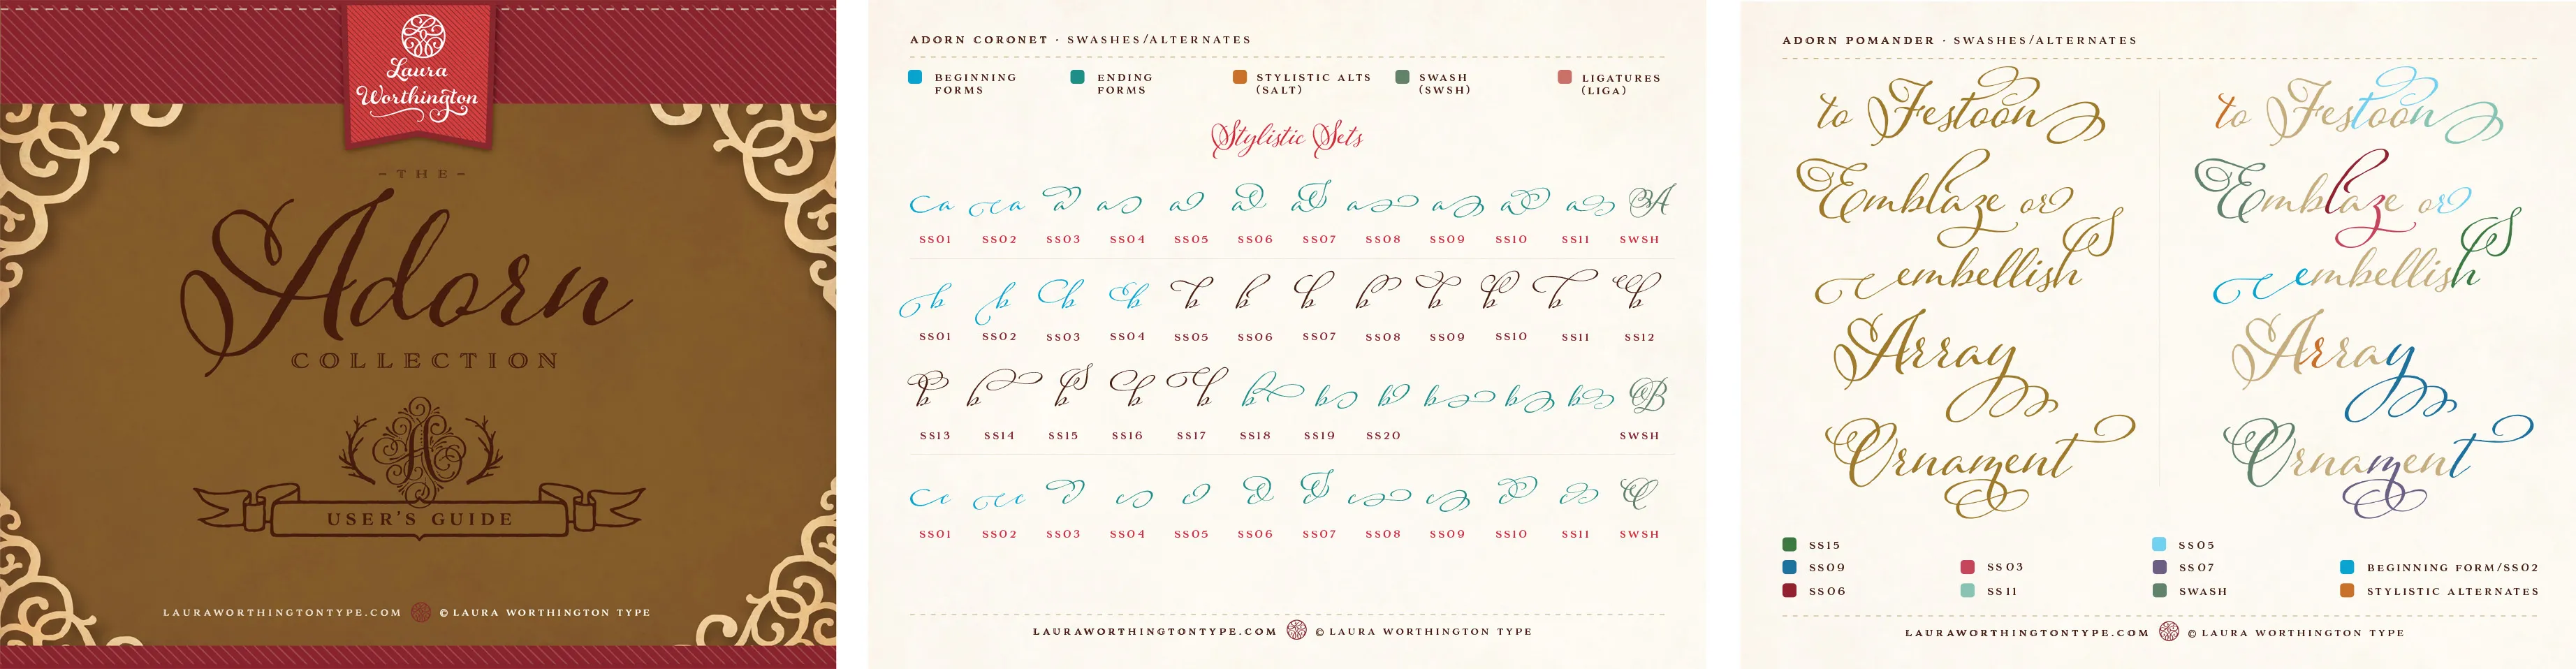 Laura
Worthington
- THE -
Adorn
COLLECTION
A
USER'S GUIDE
LAURAWORTHINGTONTYPE.COM © LAURA WORTHINGTON TYPE
ADORN CORONET · SWASHES/ALTERNATES
BEGINNING FORMS
ENDING FORMS
STYLISTIC ALTS (SALT)
SWASH (SWSH)
LIGATURES (LIGA)
Stylistic Sets
a a a a a a a a a a a A
SS01 SS02 SS03 SS04 SS05 SS06 SS07 SS08 SS09 SS10 SS11 SWSH
b b b b b b b b b b b b
SS01 SS02 SS03 SS04 SS05 SS06 SS07 SS08 SS09 SS10 SS11 SS12
b b b b b b b b b b b B
SS13 SS14 SS15 SS16 SS17 SS18 SS19 SS20 SWSH
c c c c c c c c c c c C
SS01 SS02 SS03 SS04 SS05 SS06 SS07 SS08 SS09 SS10 SS11 SWSH
LAURAWORTHINGTONTYPE.COM © LAURA WORTHINGTON TYPE
ADORN POMANDER · SWASHES/ALTERNATES
to Festoon
Emblaze or
embellish
Array
Ornament
to Festoon
Emblaze or
embellish
Array
Ornament
SS15
SS09
SS06
SS03
SS11
SS05
SS07
SWASH
BEGINNING FORM/SS02
STYLISTIC ALTERNATES
LAURAWORTHINGTONTYPE.COM © LAURA WORTHINGTON TYPE